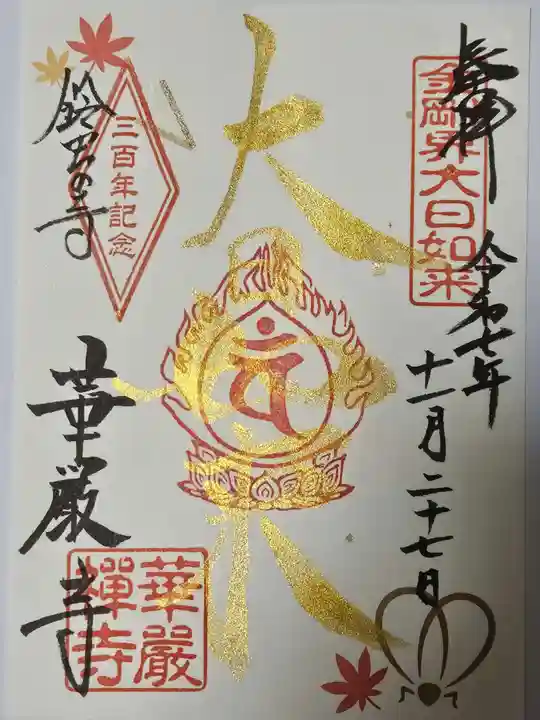 奉拝
金剛界大日如来
令和七年
十一月二十七日
大日如来
三百年記念
鈴虫の寺
華厳寺
華嚴禪寺